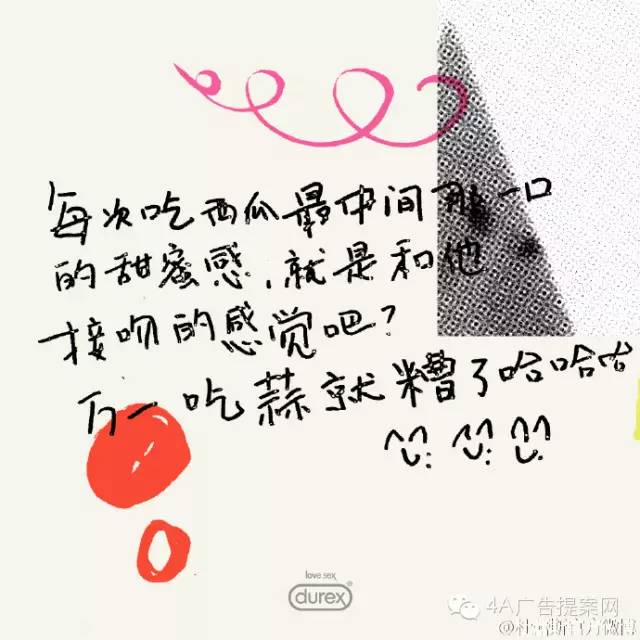 每次吃西瓜最中间那一口
的甜蜜感,就是和他
接吻的感觉吧?
万一吃蒜就糟了哈哈哈
love sex
durex
4A广告提案网